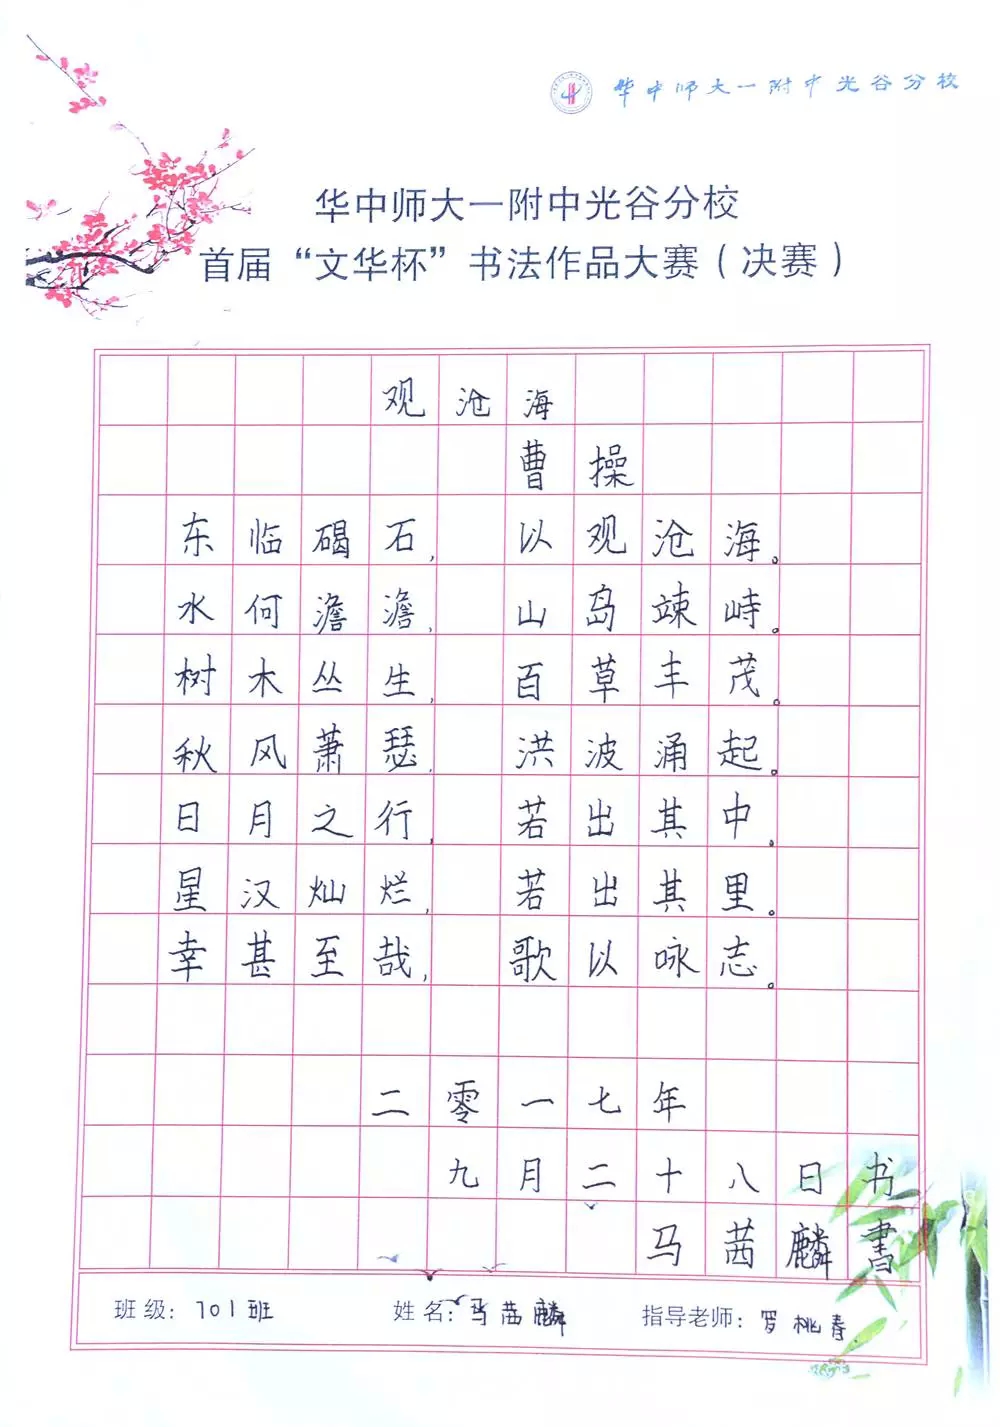 华中师大一附中光谷分校
华中师大一附中光谷分校
首届“文华杯”书法作品大赛（决赛）
观沧海
曹操
东临碣石，以观沧海。
水何澹澹，山岛竦峙。
树木丛生，百草丰茂。
秋风萧瑟，洪波涌起。
日月之行，若出其中。
星汉灿烂，若出其里。
幸甚至哉，歌以咏志。
二零一七年
九月二十八日书
马茜麟書
班级：701班 姓名：马茜麟 指导老师：罗桃春